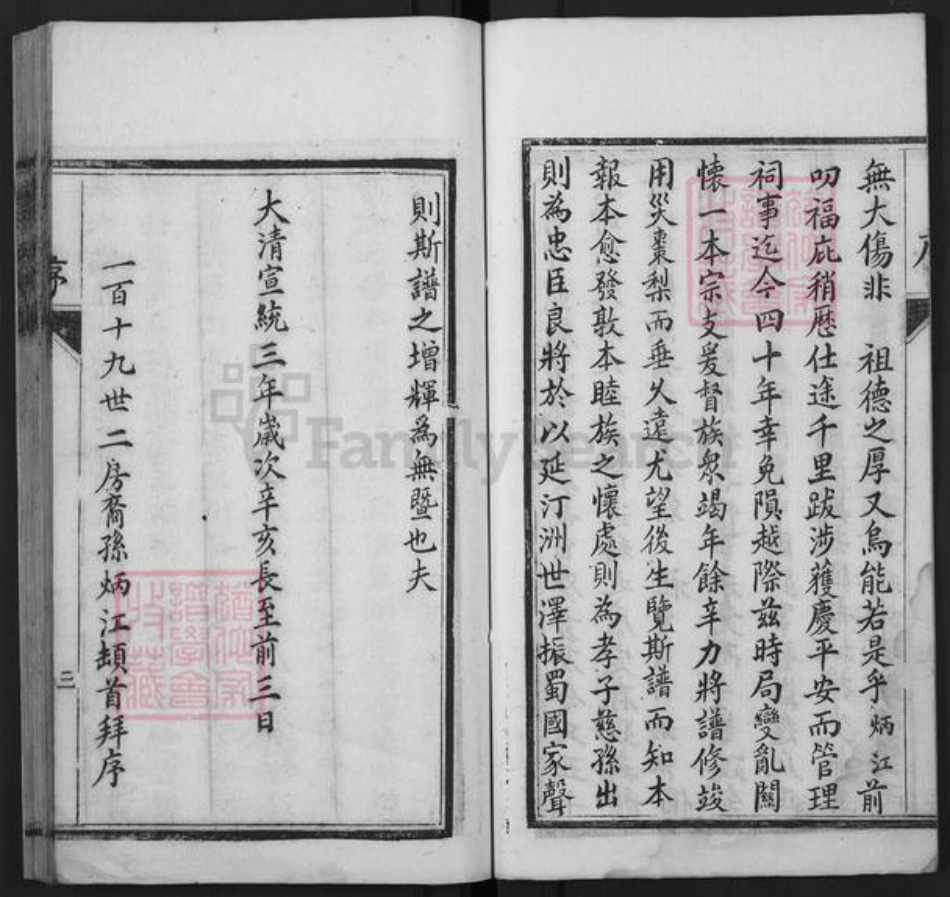 無大傷非　祖德之厚又烏能若是乎炳江前
叨福庇稍歷仕途千里跋涉獲慶平安而管理
祠事迄今四十年幸免隕越際茲時局變亂關
懷一本宗支爰督族眾竭年餘辛力將譜修竣
用災棗梨而垂久遠尤望後生覽斯譜而知本
報本愈發敦本睦族之懷處則為孝子慈孫出
則為忠臣良將於以延汀洲世澤振蜀國家聲
則斯譜之增輝為無暨也夫
大清宣統三年歲次辛亥長至前三日
一百十九世二房裔孫炳江頓首拜序
序
二
FamilySearch